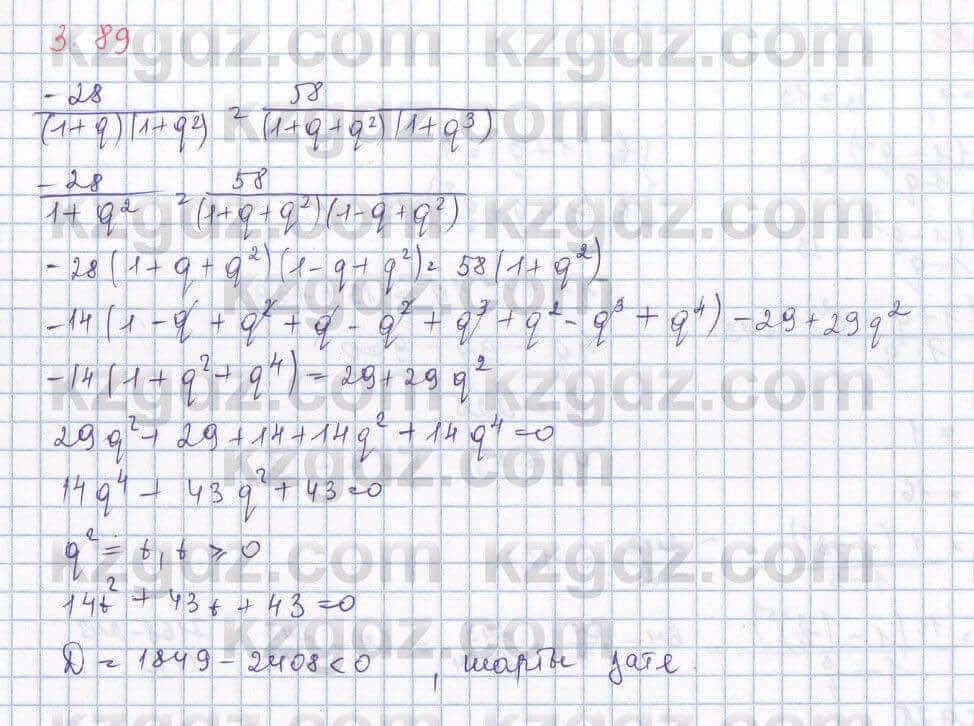 3.89
-28 / (1+q)(1+q²) = 58 / (1+q+q²)(1+q³)
-28 / 1+q² = 58 / (1+q+q²)(1-q+q²)
-28(1+q+q²)(1-q+q²) = 58(1+q²)
-14(1-q+q²+q-q²+q³+q²-q³+q⁴)-29+29q²
-14(1+q²+q⁴)=29+29q²
29q²+29+14+14q²+14q⁴=0
14q⁴+43q²+43=0
q²=t, t⩾0
14t²+43t+43=0
D=1849-2408<0, шарты қате
kzgdz.com